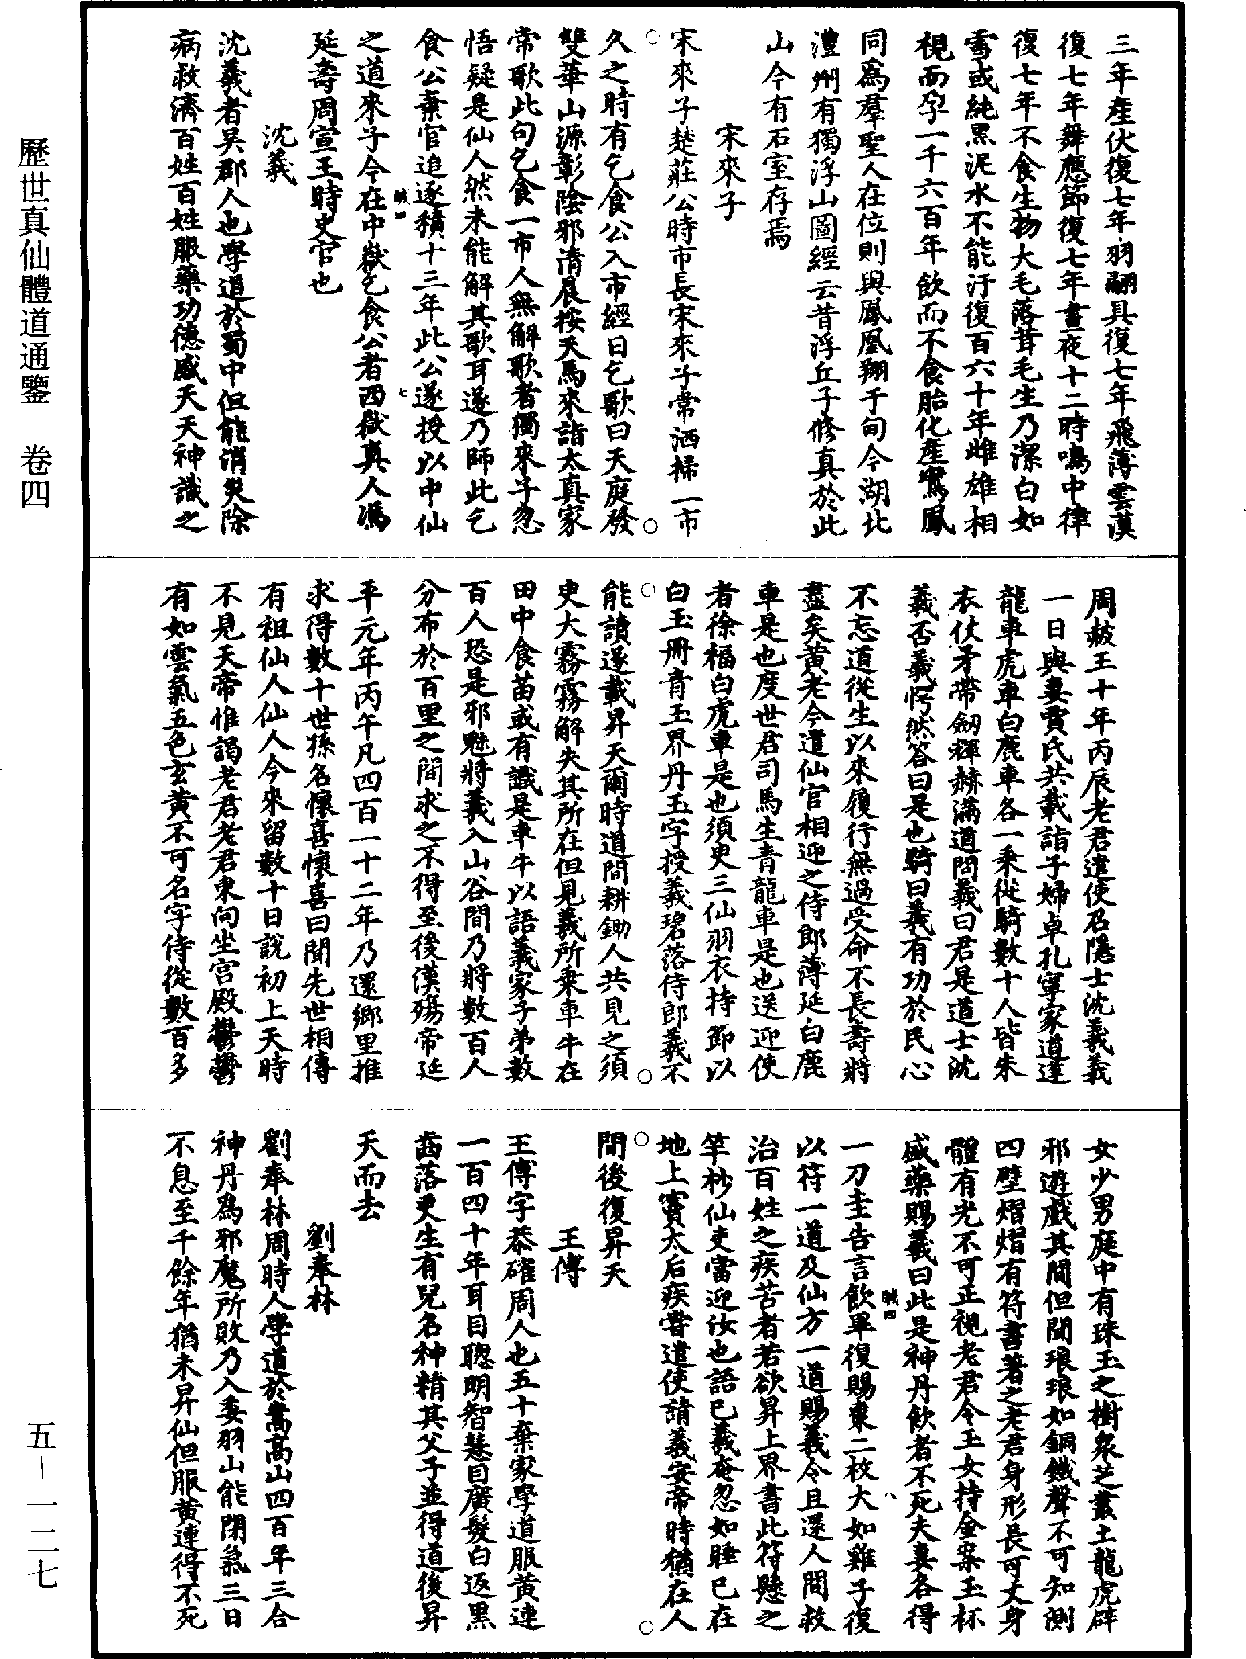 歷世真仙體道通鑒　卷四
三年產伏復七年羽翮具復七年飛薄雲漢
復七年舞應節復七年晝夜十二時鳴中律
復七年不食生物大毛落茸毛生乃潔白如
雪或純黑泥水不能汙復百六十年雌雄相
視而孕一千六百年飲而不食胎化產鸞鳳
同為羣聖人在位則與鳳凰翔于甸今湖北
澧州有獨浮山圖經云昔浮丘子修真於此
山今有石室存焉
宋來子
宋來子楚莊公時市長宋來子常洒掃一市
久之時有乞食公入市經日乞歌曰天庭發
雙華山源彰陰邪清晨按天馬來詣太真家
常歌此句乞食一市人無解歌者獨來子忽
悟疑是仙人然未能解其歌耳遂乃師此乞
食公棄官追逐積十三年此公遂授以中仙
之道來子今在中嶽乞食公者西嶽真人馮
延壽周宣王時史官也
沈羲
沈羲者吳郡人也學道於蜀中但能消災除
病救濟百姓百姓服藥功德感天天神識之
周赧王十年丙辰老君遣使召隱士沈羲羲
一日與妻賈氏共載詣子婦卓孔寧家道逢
龍車虎車白鹿車各一乘從騎數十人皆朱
衣仗矛帶劒輝赫滿道問羲曰君是道士沈
羲否羲愕然答曰是也騎曰羲有功於民心
不忘道從生以來履行無過受命不長壽將
盡矣黃老今遣仙官相迎之侍郎薄延白鹿
車是也度世君司馬生青龍車是也送迎使
者徐福白虎車是也須史三仙羽衣持節以
白玉冊青玉界丹玉字授羲碧落侍郎羲不
能讀遂載昇天爾時道間耕鋤人共見之須
史大霧霧解失其所在但見羲所乘車牛在
田中食苗或有識是車牛以語羲家子弟數
百人恐是邪魅將羲入山谷間乃將數百人
分布於百里之間求之不得至後漢殤帝延
平元年丙午凡四百一十二年乃還鄉里推
求得數十世孫名懷喜懷喜曰聞先世相傳
有祖仙人仙人今來留數十日說初上天時
不見天帝惟謁老君老君東向坐宮殿鬱鬱
有如雲氣五色玄黃不可名字侍從數百多
女少男庭中有珠玉之樹衆芝叢土龍虎辟
邪遊戲其間但聞琅琅如銅鐵聲不可知測
四壁熠熠有符書著之老君身形長可丈身
體有光不可正視老君令玉女持金案玉杯
盛藥賜羲曰此是神丹飲者不死夫妻各得
一刀圭告言飲畢復賜棗二枚大如雞子復
以符一道及仙方一道賜羲令且還人間救
治百姓之疾苦者若欲昇上界書此符懸之
竿杪仙吏當迎汝也語已羲奄忽如睡已在
地上竇太后疾嘗遣使請羲安帝時猶在人
間後復昇天
王傅
王傅字恭確周人也五十棄家學道服黃連
一百四十年耳目聰明智慧自廣髮白返黑
齒落更生有兒名神精其父子並得道後昇
天而去
劉奉林
劉奉林周時人學道於嵩高山四百年三合
神丹為邪魔所敗乃入委羽山能閉氣三日
不息至千餘年猶未昇仙但服黃連得不死
五—一二七